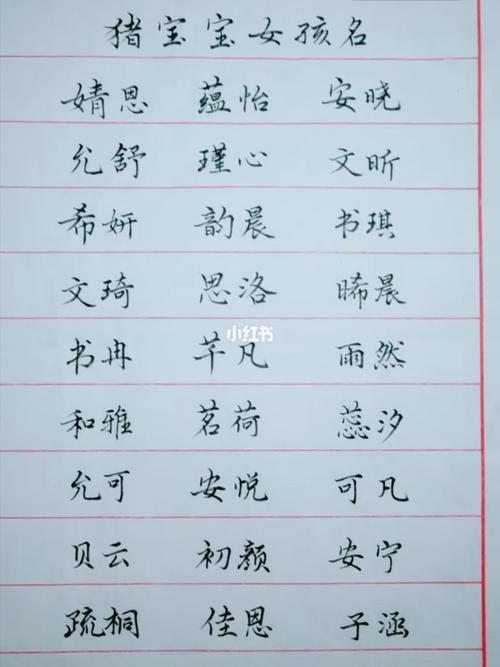 猪宝宝女孩名
婧恩 蕴怡 安晓
允舒 瑾心 文昕
希妍 韵晨 书琪
文琦 思洛 晞晨
小红书
书冉 芊凡 雨然
和雅 茗荷 蕊汐
允可 安悦 可凡
贝云 初颜 安宁
疏桐 佳恩 子涵